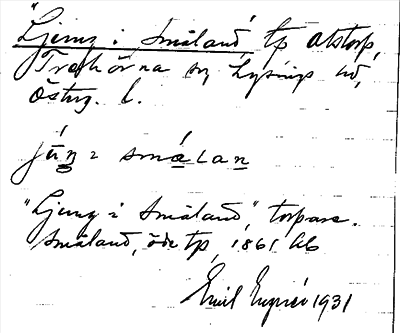 "Ljung i Småland tp Alstorp,
Trehörna sn Lysings hd,
Östg. l.
júŋ i smálan
"Ljung i Småland," torpare.
Småland, öde tp, 1861 hb
Emil 1931